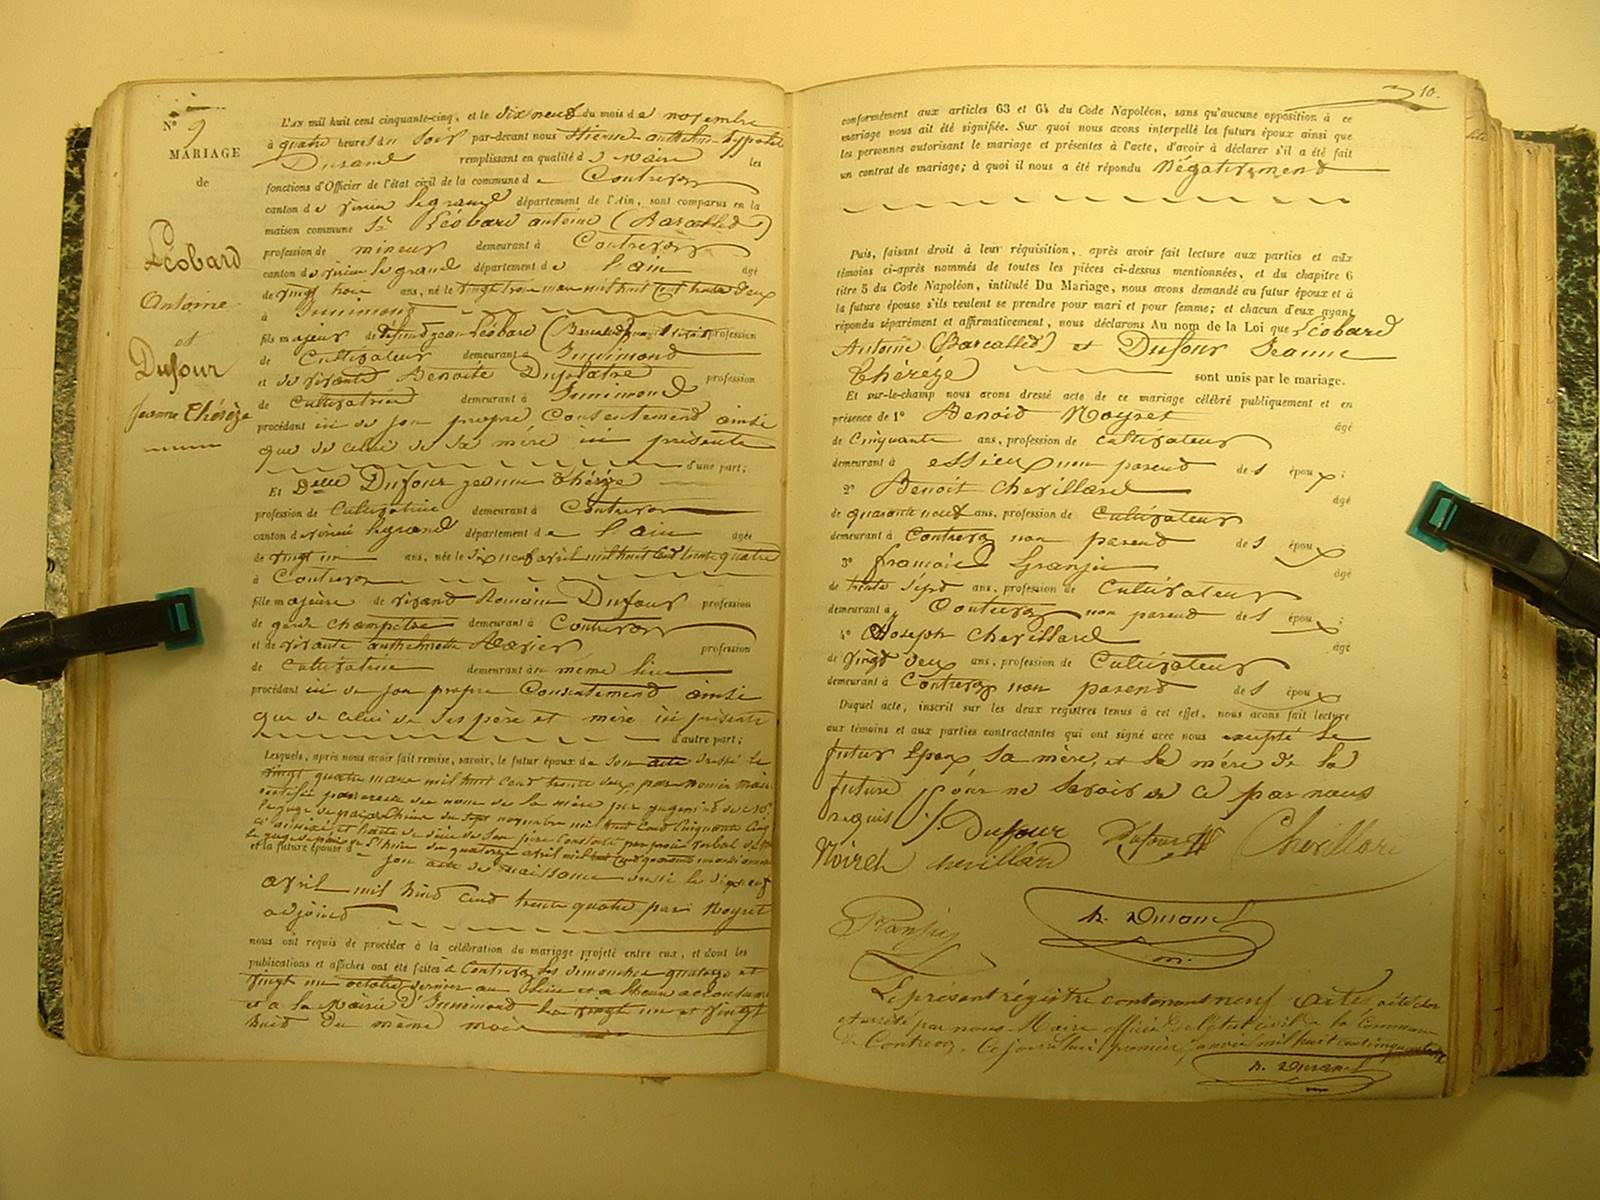 N° 9
MARIAGE
de
Léobard
Antoine
et
Dufour
Jeanne Thérèze
L'AN mil huit cent cinquante-cinq, et le dix neuf du mois de novembre
à quatre heures du soir par-devant nous étienne anthelme hyppolite
Durand remplissant en qualité de maire les
fonctions d'Officier de l'état civil de la commune de Contrevoz
canton de virieu le grand département de l'Ain, sont comparus en la
maison commune Sr Léobard antoine (Barcallied)
profession de mineur demeurant à Contrevoz
canton de virieu le grand département de l'ain âgé
de vingt trois ans, né le vingt trois mars mil huit cent trente deux
à Innimond
fils majeur de défunt jean Léobard (Barcallied) profession
de Cultivateur demeurant à Innimond
et de vivante Benoite Duplatre profession
de Cultivatrice demeurant à Innimond
procédant ici de son propre Consentement ainsi
que de celui de sa mère ici présente
d'une part;
Et Delle Dufour jeanne thérèze
profession de Cultivatrice demeurant à Contrevoz
canton de virieu legrand département de l'ain âgée
de vingt un ans, née le dix neuf avril mil huit cent trente quatre
à Contrevoz
fille majeure de vivant Romain Dufour profession
de garde champêtre demeurant à Contrevoz
et de vivante anthelmette profession
de Cultivatrice demeurant au même lieu
procédant ici de son propre Consentement ainsi
que de celui de ses père et mère ici présents
d'autre part;
Lesquels, après nous avoir fait remise, savoir, le futur époux de son acte dressé le
vingt quatre mars mil huit cent trente deux par
du nom de la mère par jugement
du sept novembre mil huit cent cinquante cinq
de son père
et la future épouse d
son acte de naissance dressé le dix neuf
avril mil huit cent trente quatre par Noyret
adjoint
nous ont requis de procéder à la célébration du mariage projeté entre eux, et dont les
publications et affiches ont été faites à Contrevoz les dimanches quatorze et
vingt un octobre dernier
et à la Mairie d'Innimond les vingt un et vingt
huit du même mois
10.
conformément aux articles 63 et 64 du Code Napoléon, sans qu'aucune opposition à ce
mariage nous ait été signifiée. Sur quoi nous avons interpellé les futurs époux ainsi que
les personnes autorisant le mariage et présentes à l'acte, d'avoir à déclarer s'il a été fait
un contrat de mariage; à quoi il nous a été répondu Négativement
Puis, faisant droit à leur réquisition, après avoir fait lecture aux parties et aux
témoins ci-après nommés de toutes les pièces ci-dessus mentionnées, et du chapitre 6
titre 5 du Code Napoléon, intitulé Du Mariage, nous avons demandé au futur époux et à
la future épouse s'ils veulent se prendre pour mari et pour femme; et chacun d'eux ayant
répondu séparément et affirmativement, nous déclarons Au nom de la Loi que Léobard
Antoine (Barcallied) et Dufour Jeanne
thérèze sont unis par le mariage.
Et sur-le-champ nous avons dressé acte de ce mariage célébré publiquement et en
présence de 1° Benoit Noyret âgé
de Cinquante ans, profession de cultivateur
demeurant à essieux non parent des époux;
2° Benoit Chevillard âgé
de quarante neuf ans, profession de Cultivateur
demeurant à Contrevoz non parent des époux;
3° françois Granjie âgé
de trente sept ans, profession de Cultivateur
demeurant à Contrevoz non parent des époux;
4° Joseph Chevillard âgé
de vingt deux ans, profession de Cultivateur
demeurant à Contrevoz non parent des époux
Duquel acte, inscrit sur les deux registres tenus à cet effet, nous avons fait lecture
aux témoins et aux parties contractantes qui ont signé avec nous excepté le
futur Epoux sa mère, et la mère de la
future pour ne savoir de ce par nous
requis J. Dufour Dufour Chevillard
Noiret chevillard
h. Durand
Granjie
Le présent régistre contenant neuf actes, a été clos
et arrêté par nous Maire officier de l'état civil de la Commune
de Contrevoz, Ce jourd'hui premier janvier mil huit cent cinquante six
h. Durand